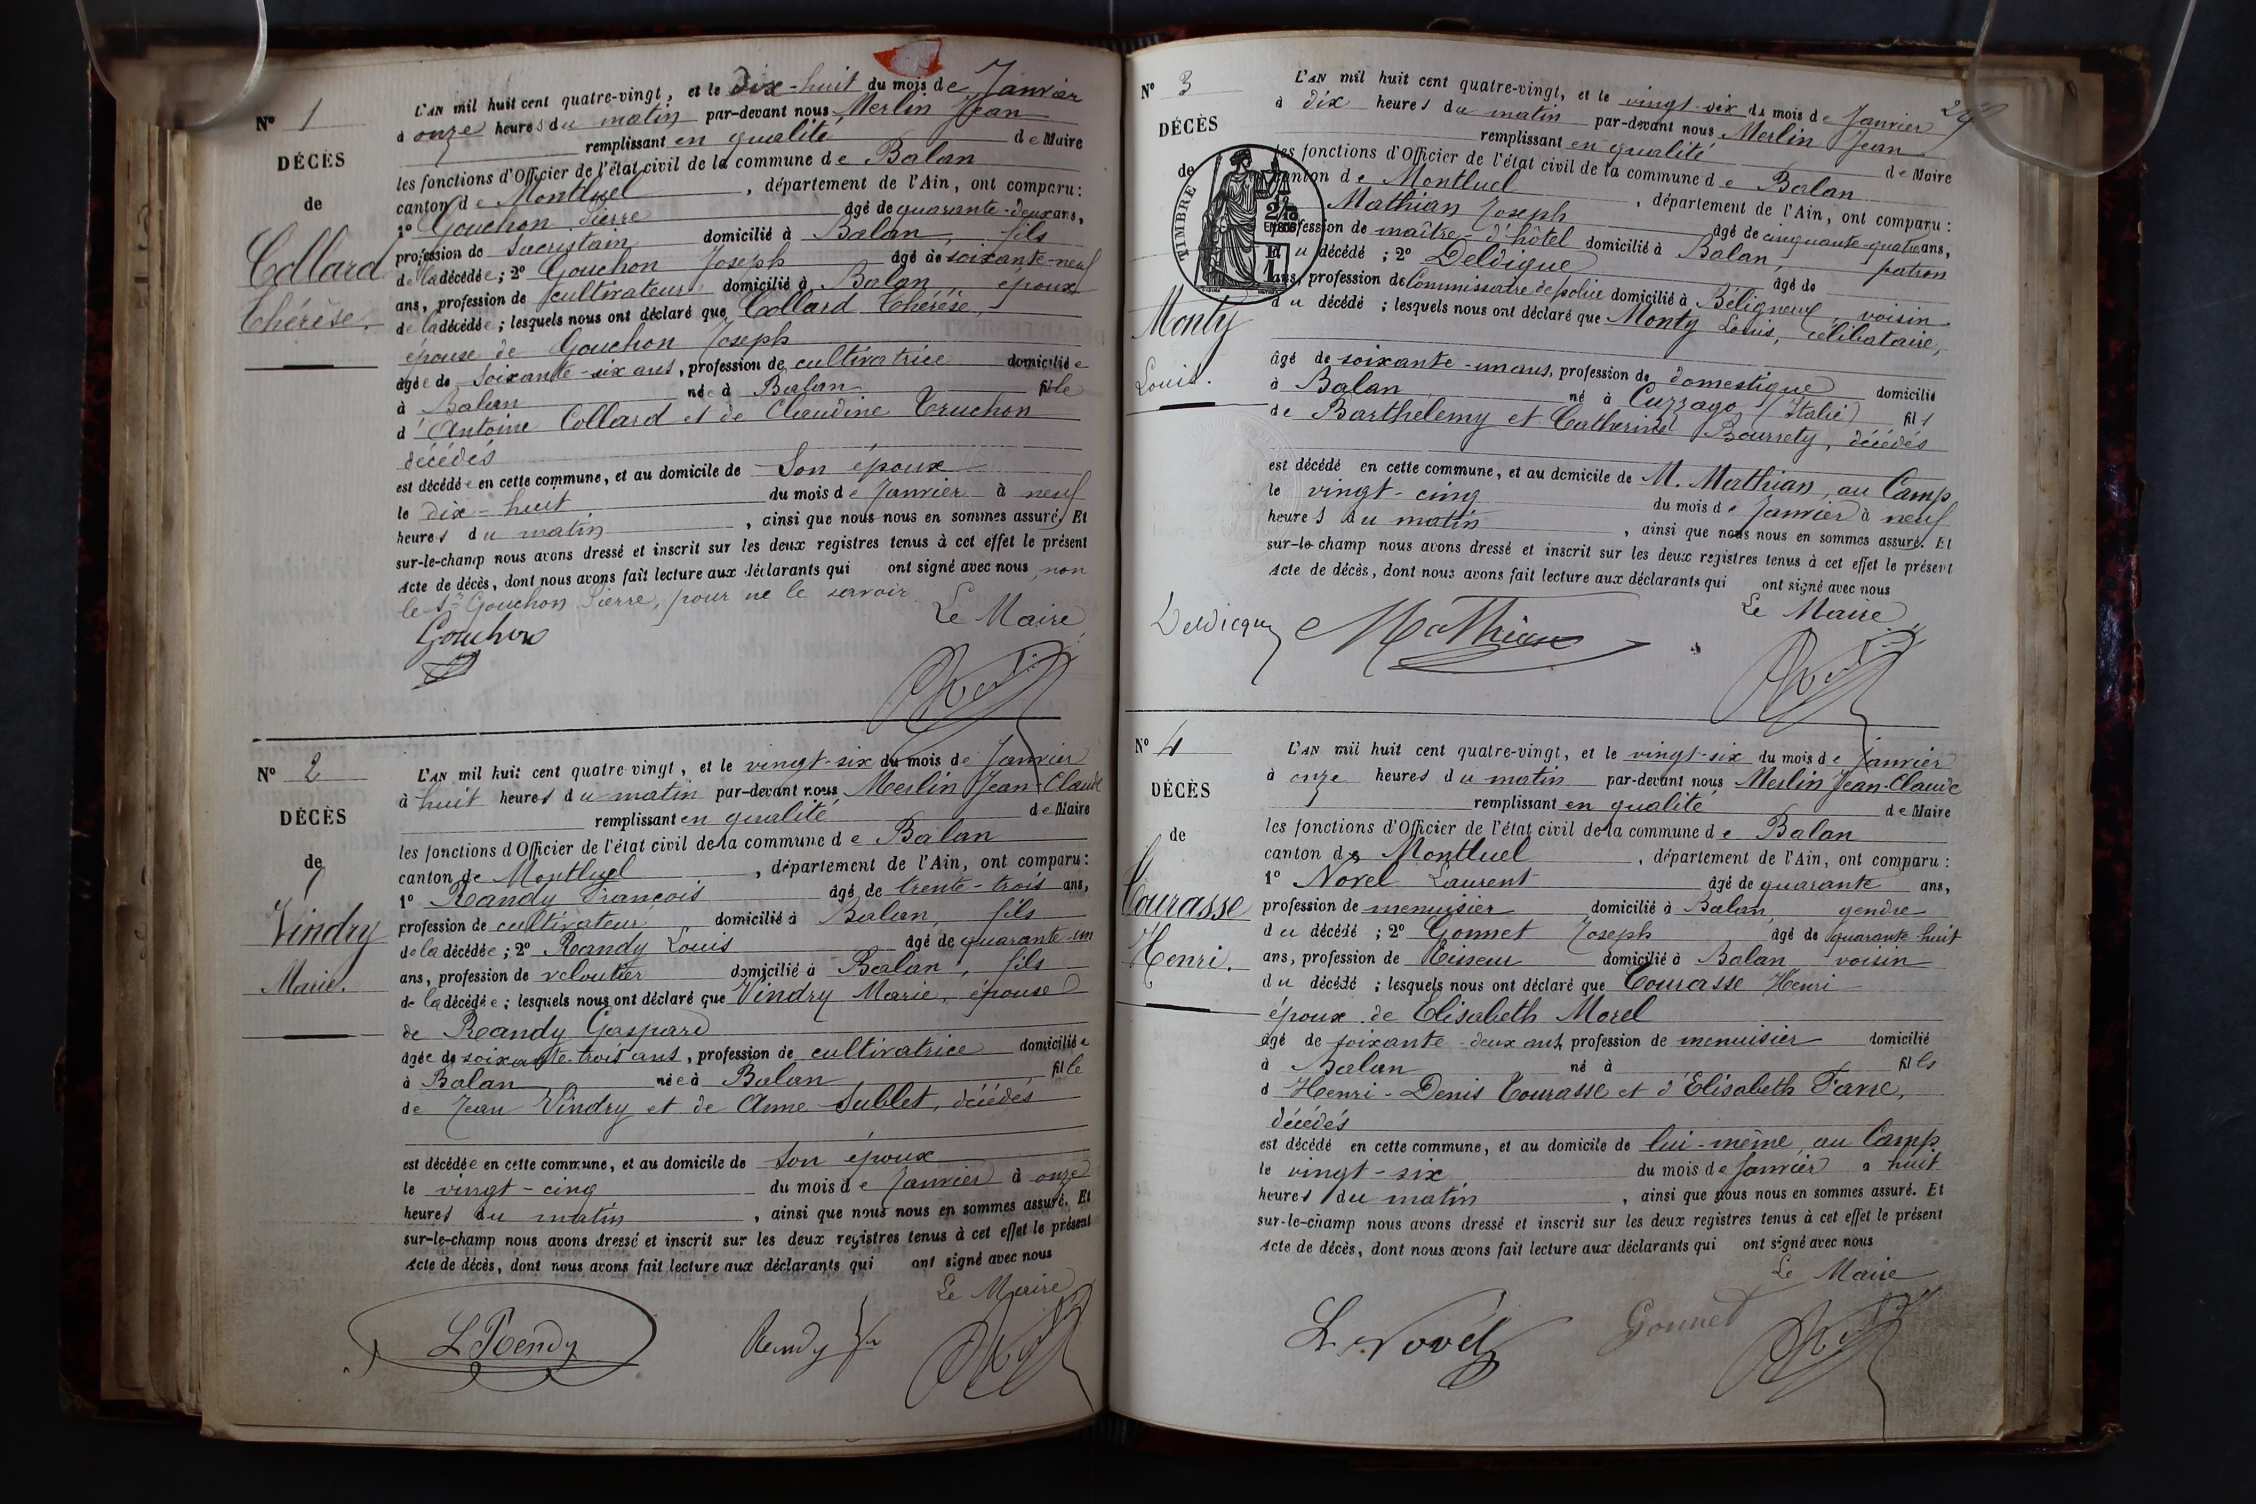 N° 1
DÉCÈS
de
Collard
Thérèse.
L'AN mil huit cent quatre-vingt, et le dix-huit du mois de Janvier
à onze heures du matin par-devant nous Merlin Jean
remplissant en qualité de Maire
les fonctions d'Officier de l'état civil de la commune de Balan
canton de Montluel, département de l'Ain, ont comparu:
1° Gouchon Pierre âgé de quarante-deux ans,
profession de sacristain domicilié à Balan, fils
de la décédée; 2° Gouchon Joseph âgé de soixante-neuf
ans, profession de cultivateur domicilié à Balan époux
de la décédée; lesquels nous ont déclaré que Collard Thérèse,
épouse de Gouchon Joseph
âgée de soixante-six ans, profession de cultivatrice domiciliée
à Balan née à Balan fille
d'Antoine Collard et de Claudine Truchon
décédés
est décédée en cette commune, et au domicile de son époux
le dix-huit du mois de Janvier à neuf
heures du matin, ainsi que nous nous en sommes assuré. Et
sur-le-champ nous avons dressé et inscrit sur les deux registres tenus à cet effet le présent
Acte de décès, dont nous avons fait lecture aux déclarants qui ont signé avec nous, non
le Sr Gouchon Pierre, pour ne le savoir
Le Maire
Gouchon
N° 2
DÉCÈS
de
Vindry
Marie.
L'AN mil huit cent quatre-vingt, et le vingt-six du mois de Janvier
à huit heures du matin par-devant nous Merlin Jean-Claude
remplissant en qualité de Maire
les fonctions d'Officier de l'état civil de la commune de Balan
canton de Montluel, département de l'Ain, ont comparu:
1° Randy François âgé de trente-trois ans,
profession de cultivateur domicilié à Balan, fils
de la décédée; 2° Randy Louis âgé de quarante-un
ans, profession de veloutier domicilié à Balan, fils
de la décédée; lesquels nous ont déclaré que Vindry Marie, épouse
de Randy Gaspard
âgée de soixante-trois ans, profession de cultivatrice domiciliée
à Balan née à Balan fille
de Jean Vindry et de Anne Sublet, décédés
est décédée en cette commune, et au domicile de son époux
le vingt-cinq du mois de Janvier à onze
heures du matin, ainsi que nous nous en sommes assuré. Et
sur-le-champ nous avons dressé et inscrit sur les deux registres tenus à cet effet le présent
Acte de décès, dont nous avons fait lecture aux déclarants qui ont signé avec nous
Le Maire
L Rendy Rendy
N° 3
DÉCÈS
de
Monty
Louis.
TIMBRE
L'AN mil huit cent quatre-vingt, et le vingt-six du mois de Janvier
à dix heures du matin par-devant nous Merlin Jean
remplissant en qualité de Maire
les fonctions d'Officier de l'état civil de la commune de Balan
canton de Montluel, département de l'Ain, ont comparu:
Mathian Joseph âgé de cinquante-quatre ans,
profession de maître-d'hôtel domicilié à Balan, patron
du décédé; 2° Deldique âgé de
ans, profession de Commissaire de police domicilié à Béligneux, voisin
du décédé; lesquels nous ont déclaré que Monty Louis, célibataire,
âgé de soixante-un ans, profession de domestique domicilié
à Balan né à Cuzzago (Italie) fils
de Barthelemy et Catherine Bourrety, décédés
est décédé en cette commune, et au domicile de M. Mathian, au Camp
le vingt-cinq du mois de Janvier à neuf
heures du matin, ainsi que nous nous en sommes assuré. Et
sur-le-champ nous avons dressé et inscrit sur les deux registres tenus à cet effet le présent
Acte de décès, dont nous avons fait lecture aux déclarants qui ont signé avec nous
Le Maire
Deldicque Mathian
N° 4
DÉCÈS
de
Tourasse
Henri.
L'AN mil huit cent quatre-vingt, et le vingt-six du mois de Janvier
à onze heures du matin par-devant nous Merlin Jean-Claude
remplissant en qualité de Maire
les fonctions d'Officier de l'état civil de la commune de Balan
canton de Montluel, département de l'Ain, ont comparu:
1° Novel Laurent âgé de quarante ans,
profession de menuisier domicilié à Balan, gendre
du décédé; 2° Gonnet Joseph âgé de quarante-huit
ans, profession de Tisseur domicilié à Balan voisin
du décédé; lesquels nous ont déclaré que Tourasse Henri
époux de Elisabeth Morel
âgé de soixante-deux ans, profession de menuisier domicilié
à Balan né à fils
d Henri-Denis Tourasse et d'Elisabeth Favre,
décédés
est décédé en cette commune, et au domicile de lui-même, au Camp
le vingt-six du mois de Janvier à huit
heures du matin, ainsi que nous nous en sommes assuré. Et
sur-le-champ nous avons dressé et inscrit sur les deux registres tenus à cet effet le présent
Acte de décès, dont nous avons fait lecture aux déclarants qui ont signé avec nous
Le Maire
L Novel Gonnet